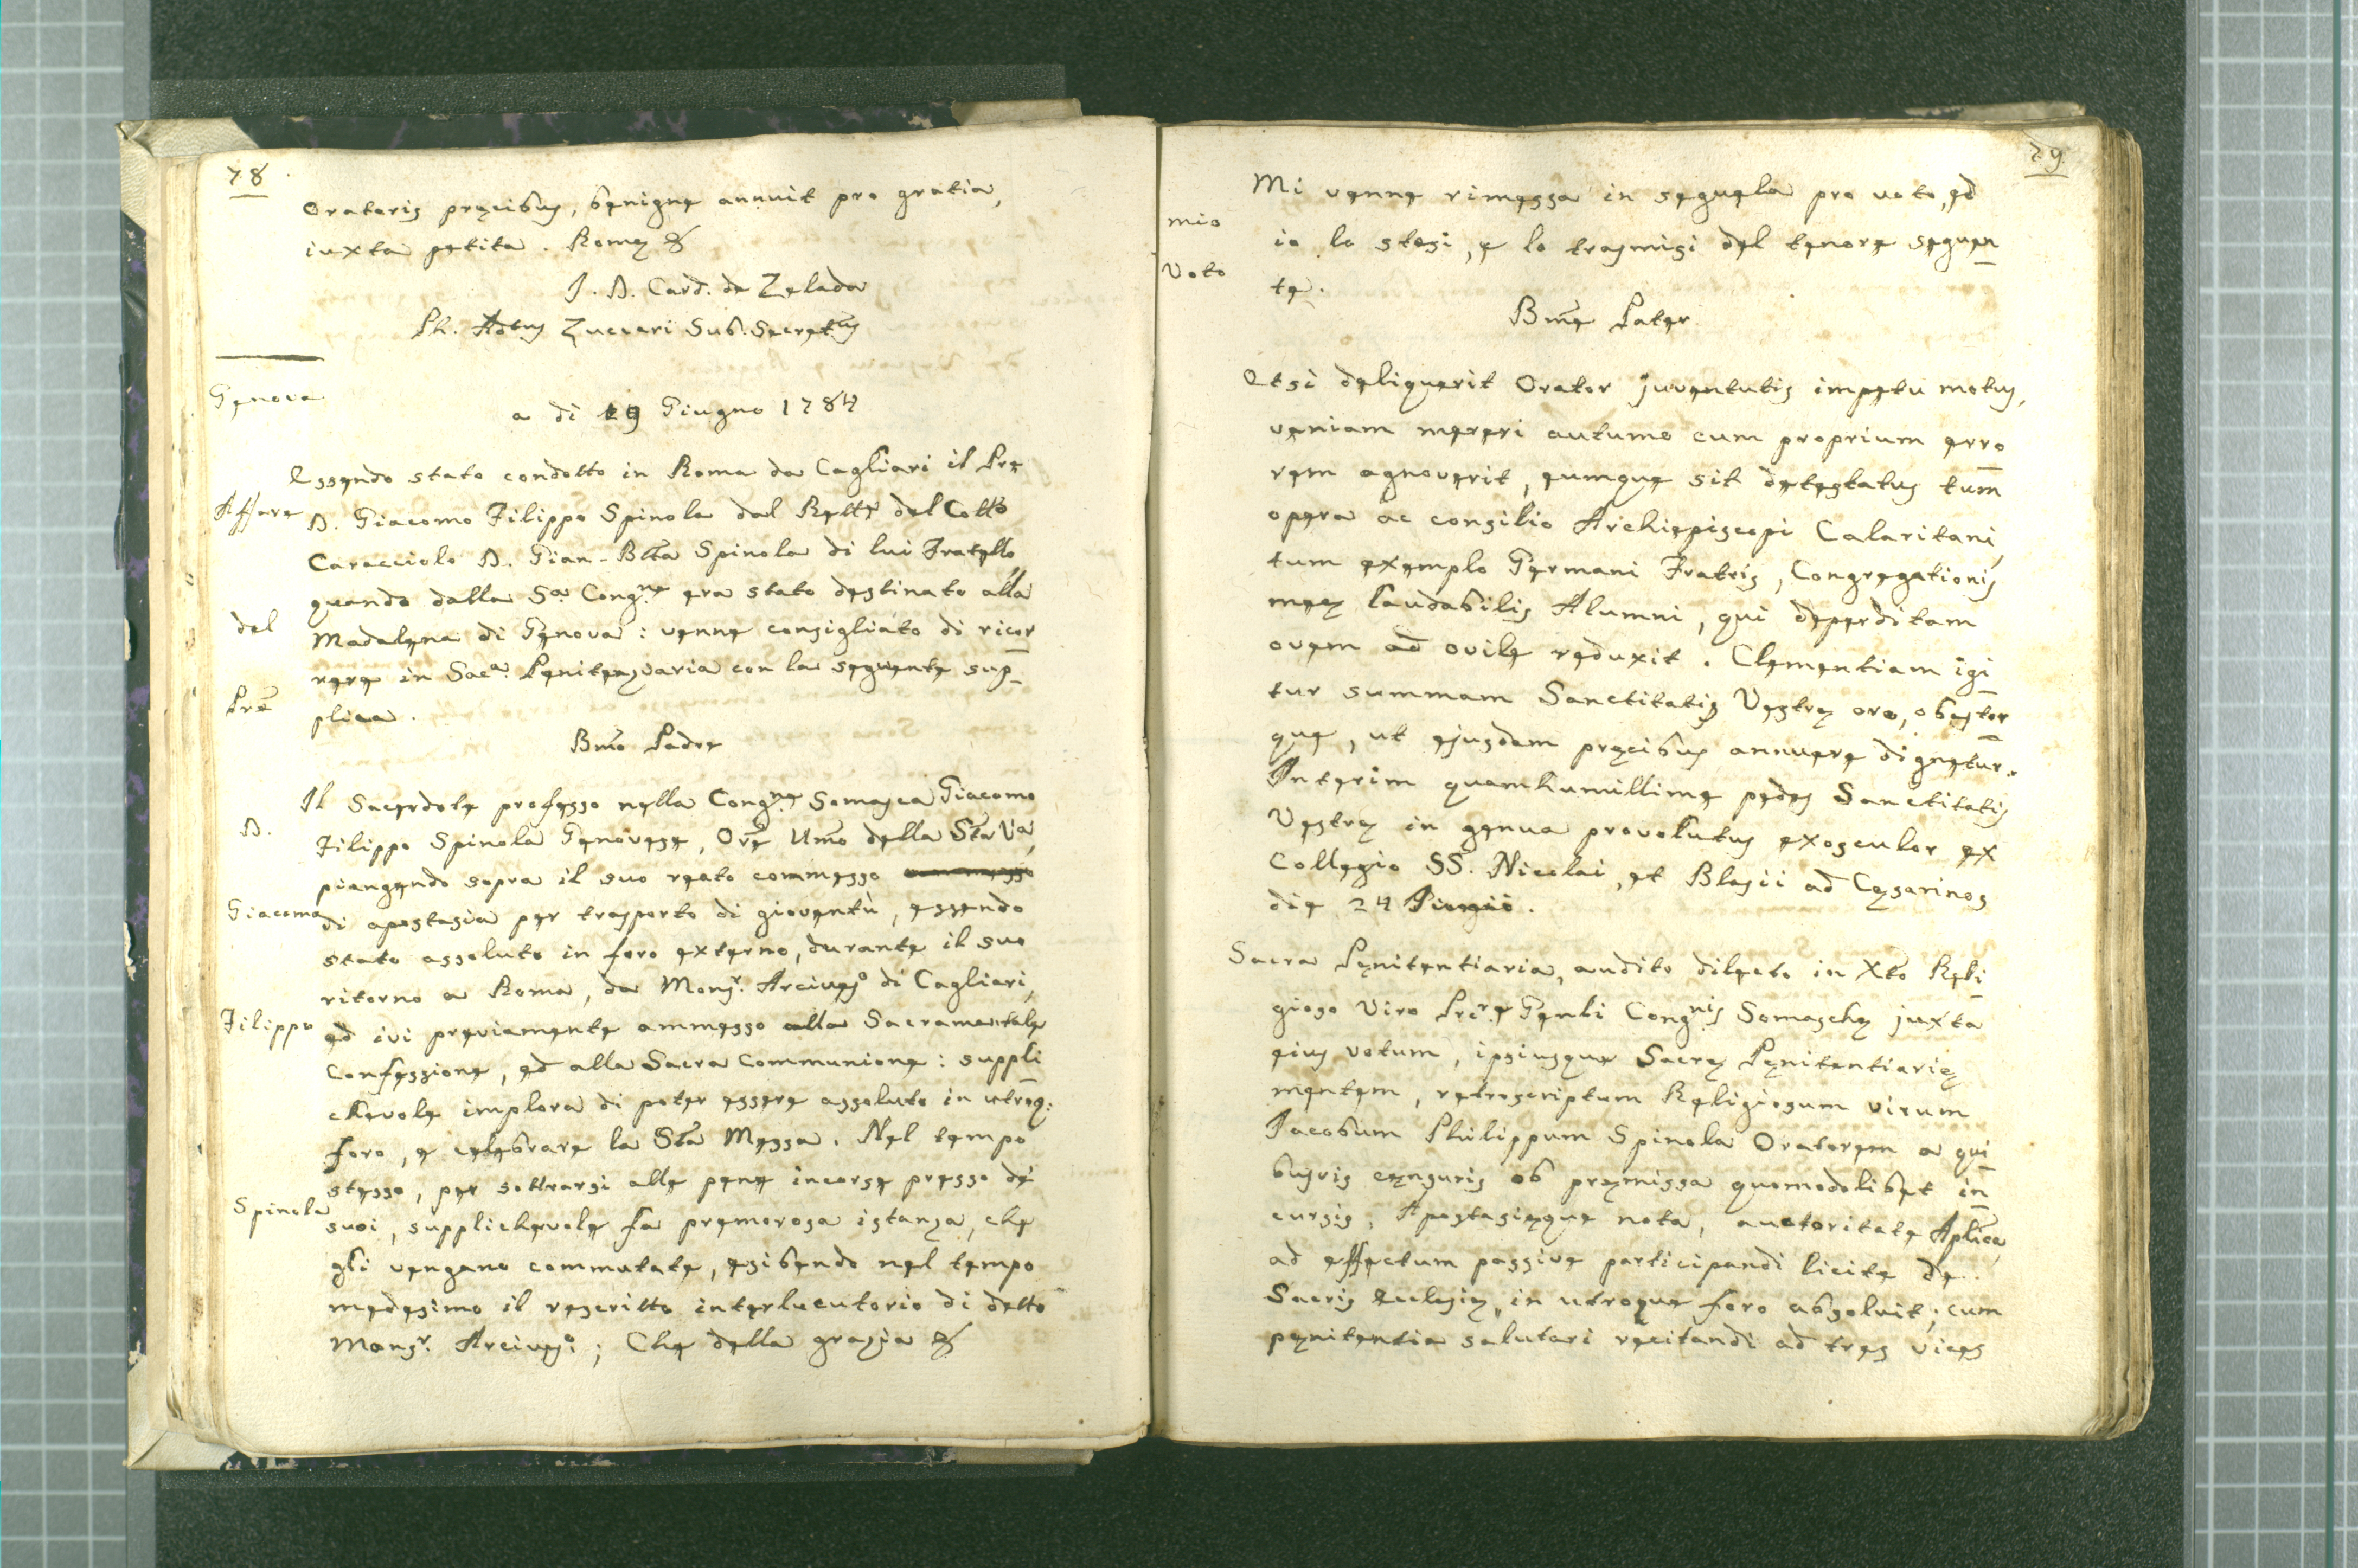 78
Oratoris precibus, benigne annuit pro gratia,
iuxta petita. Romę &
J. D. Card. de Zelada
Ph. Ant.us Zuccari Sub. Secret.us
Genova
a di 19 Giugno 1784
Affare
del
Prē
D.
Giacomo
Filippo
Spinola
Essendo stato condotto in Roma da Cagliari il Prē
D. Giacomo Filippo Spinola dal Rett.e del Coll.o
Caracciolo D. Gian-Bttā Spinola di lui Fratello
quando dalla S.a Cong.ne era stato destinato alla
Madalena di Genova: venne consigliato di ricor
rere in Sac.a Penitenzaria con la seguente sup_
plica.
Bmō Padre
Il Sacerdote professo nella Cong.ne Somasca Giacomo
Filippo Spinola Genovese, Orē Umō della Stā V.a,
piangendo sopra il suo reato commesso
di apostasia per trasporto di gioventù, essendo
stato assoluto in foro externo, durante il suo
ritorno a Roma, da Mons.r Arcives.o di Cagliari,
ed ivi previamente ammesso alla Sacramentale
Confessione, ed alla Sacra Communione: suppli
chevole implora di poter essere assoluto in utroq:
foro, e celebrare la Stā Messa. Nel tempo
stesso, per sottrarsi alle pene incorse presso de'
suoi, supplichevole fa premorosa istanza, che
gli vengano commutate, esibendo nel tempo
medesimo il rescritto interlocutorio di detto
Mons.r Arcives.o; Che della grazia &
79
mio
Voto
Mi venne rimessa in seguela pro voto, ed
io lo stesi, e lo trasmisi del tenore seguen
te.
Bmē Pater
Etsi deliquerit Orator juventutis impetu motus,
veniam mereri autumo cum proprium erro
rem agnoverit, eumque sit detestatus tum
opera ac consilio Archiepiscopi Calaritani,
tum exemplo Germani Fratris, Congregationis
meę laudabilis Alumni, qui deperditam
ovem ad ovile reduxit. Clementiam igi
tur summam Sanctitatis Vestrę oro, obstor
que, ut ejusdem precibus annuere dignetur.
Interim quamhumillime pedes Sanctitatis
Vestrę in genua provolutus exosculor ex
Collegio SS. Nicolai, et Blasii ad Cęsarinos
die 24 Iunii.
Sacra Pęnitentiaria, audito dilecto in Xtō Reli
gioso Viro Prc.re Genli Cong.nis Somaschę juxta
eius votum, ipsiusque Sacrę Pęnitentiarię
mentem, retroscriptum Religiosum virum
Jacobum Philippum Spinola Oratorem a qui
busvis censuris ob pręmissa quomodolibet in
cursis, Apostasięque nota, auctoritate Aplicā,
ad effectum passive participandi licite de
Sacris Ecclesię, in utroque foro absolvit; cum
pęnitentia salutari recitandi ad tres vices